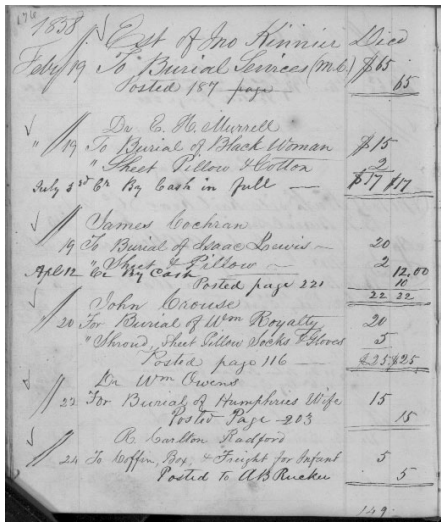 176
1858 Est of Jno Kinnier Died
Feby 19 To Burial Services (m.c.) $65
65
Posted 187 page
Dr E. H. Murrell
" 19 To Burial of Black Woman $15
" Sheet Pillow & Cotton 2
July 3rd Cr By Cash in full — $17 $17
James Cochran
19 To Burial of Isaac Lewis — 20
" Sheet & Pillow — 2
Apl 12 Cr By Cash 12.00
Posted page 221 10
22 22
John Crouse
20 For Burial of Wm Royalty 20
" Shroud, Sheet Pillow Socks & Gloves 5
Posted page 116 — $25 $25
Dr Wm Owens
22 For Burial of Humphries Wife 15
Posted Page - 203 15
R Carlton Radford
24 To Coffin, Box, & Freight for Infant 5
Posted to A B Rucker 5
149